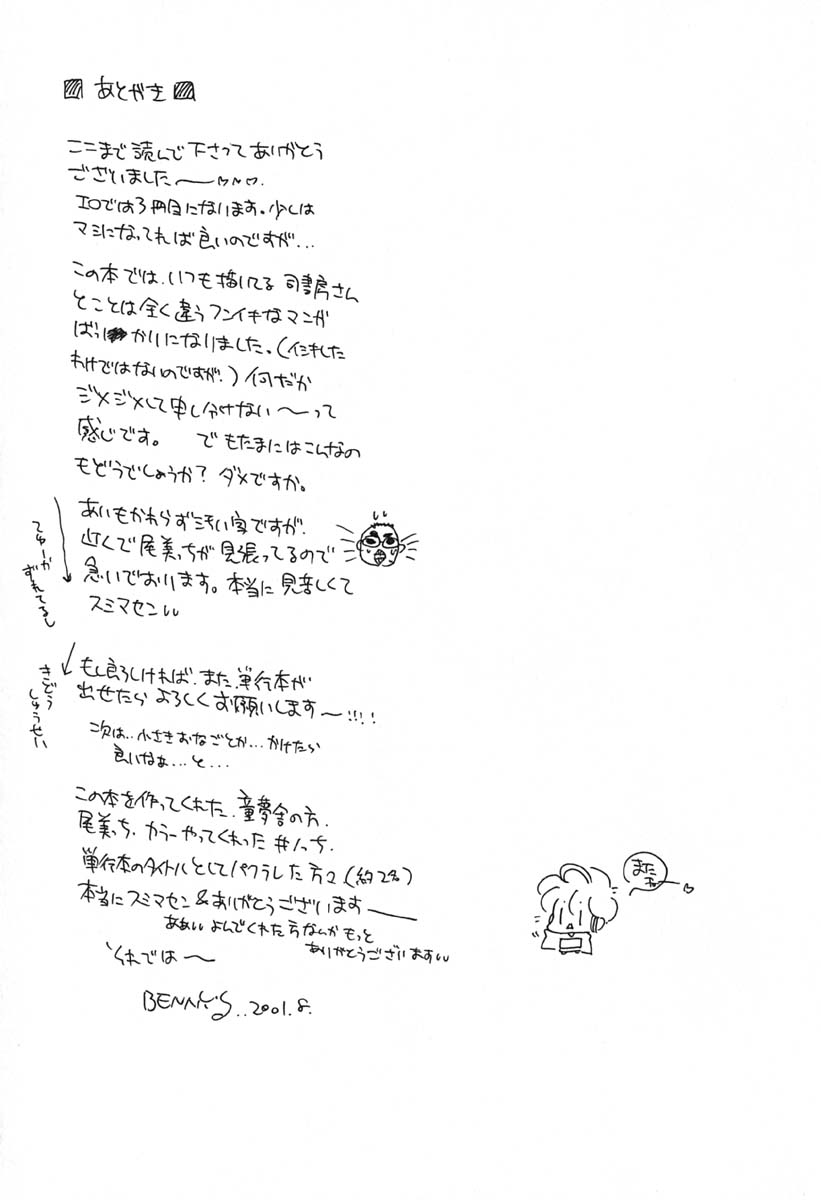 あとがき
ここまで読んで下さってありがとう
ございました〜♡〜♡.
エロでは3冊目になります。少しは
マシになってれば良いのですが...
この本では、いつも描いてる司書房さん
とことは全く違うフンイキなマンガ
ばっかりになりました。(イシキした
わけではないのですが。)何だか
ジメジメして申し分けない〜って
感じです。 でもたまにはこんなの
もどうでしょうか？ダメですか。
あいもかわらず汚い字ですが、
近くで尾美っちが見張ってるので
急いでおります。本当に見苦しくて
スミマセン
てゆーか
ずれてるし
もし良ろしければ、また、単行本が
出せたらよろしくお願いします〜!!!!
きどう
しゅうせい
次は..小さきおなごとか...かけたら
良いなぁ...と...
この本を作ってくれた、童夢舎の方、
尾美っち、カラーやってくれた
単行本のタイトルとしてパクラレした方々(約2名)
本当にスミマセン&ありがとうございます——
ああぃよんでくれた方なんかもっと
ありがとうございます
それでは〜
BENNY'S..2001.8.
また
ねー♡